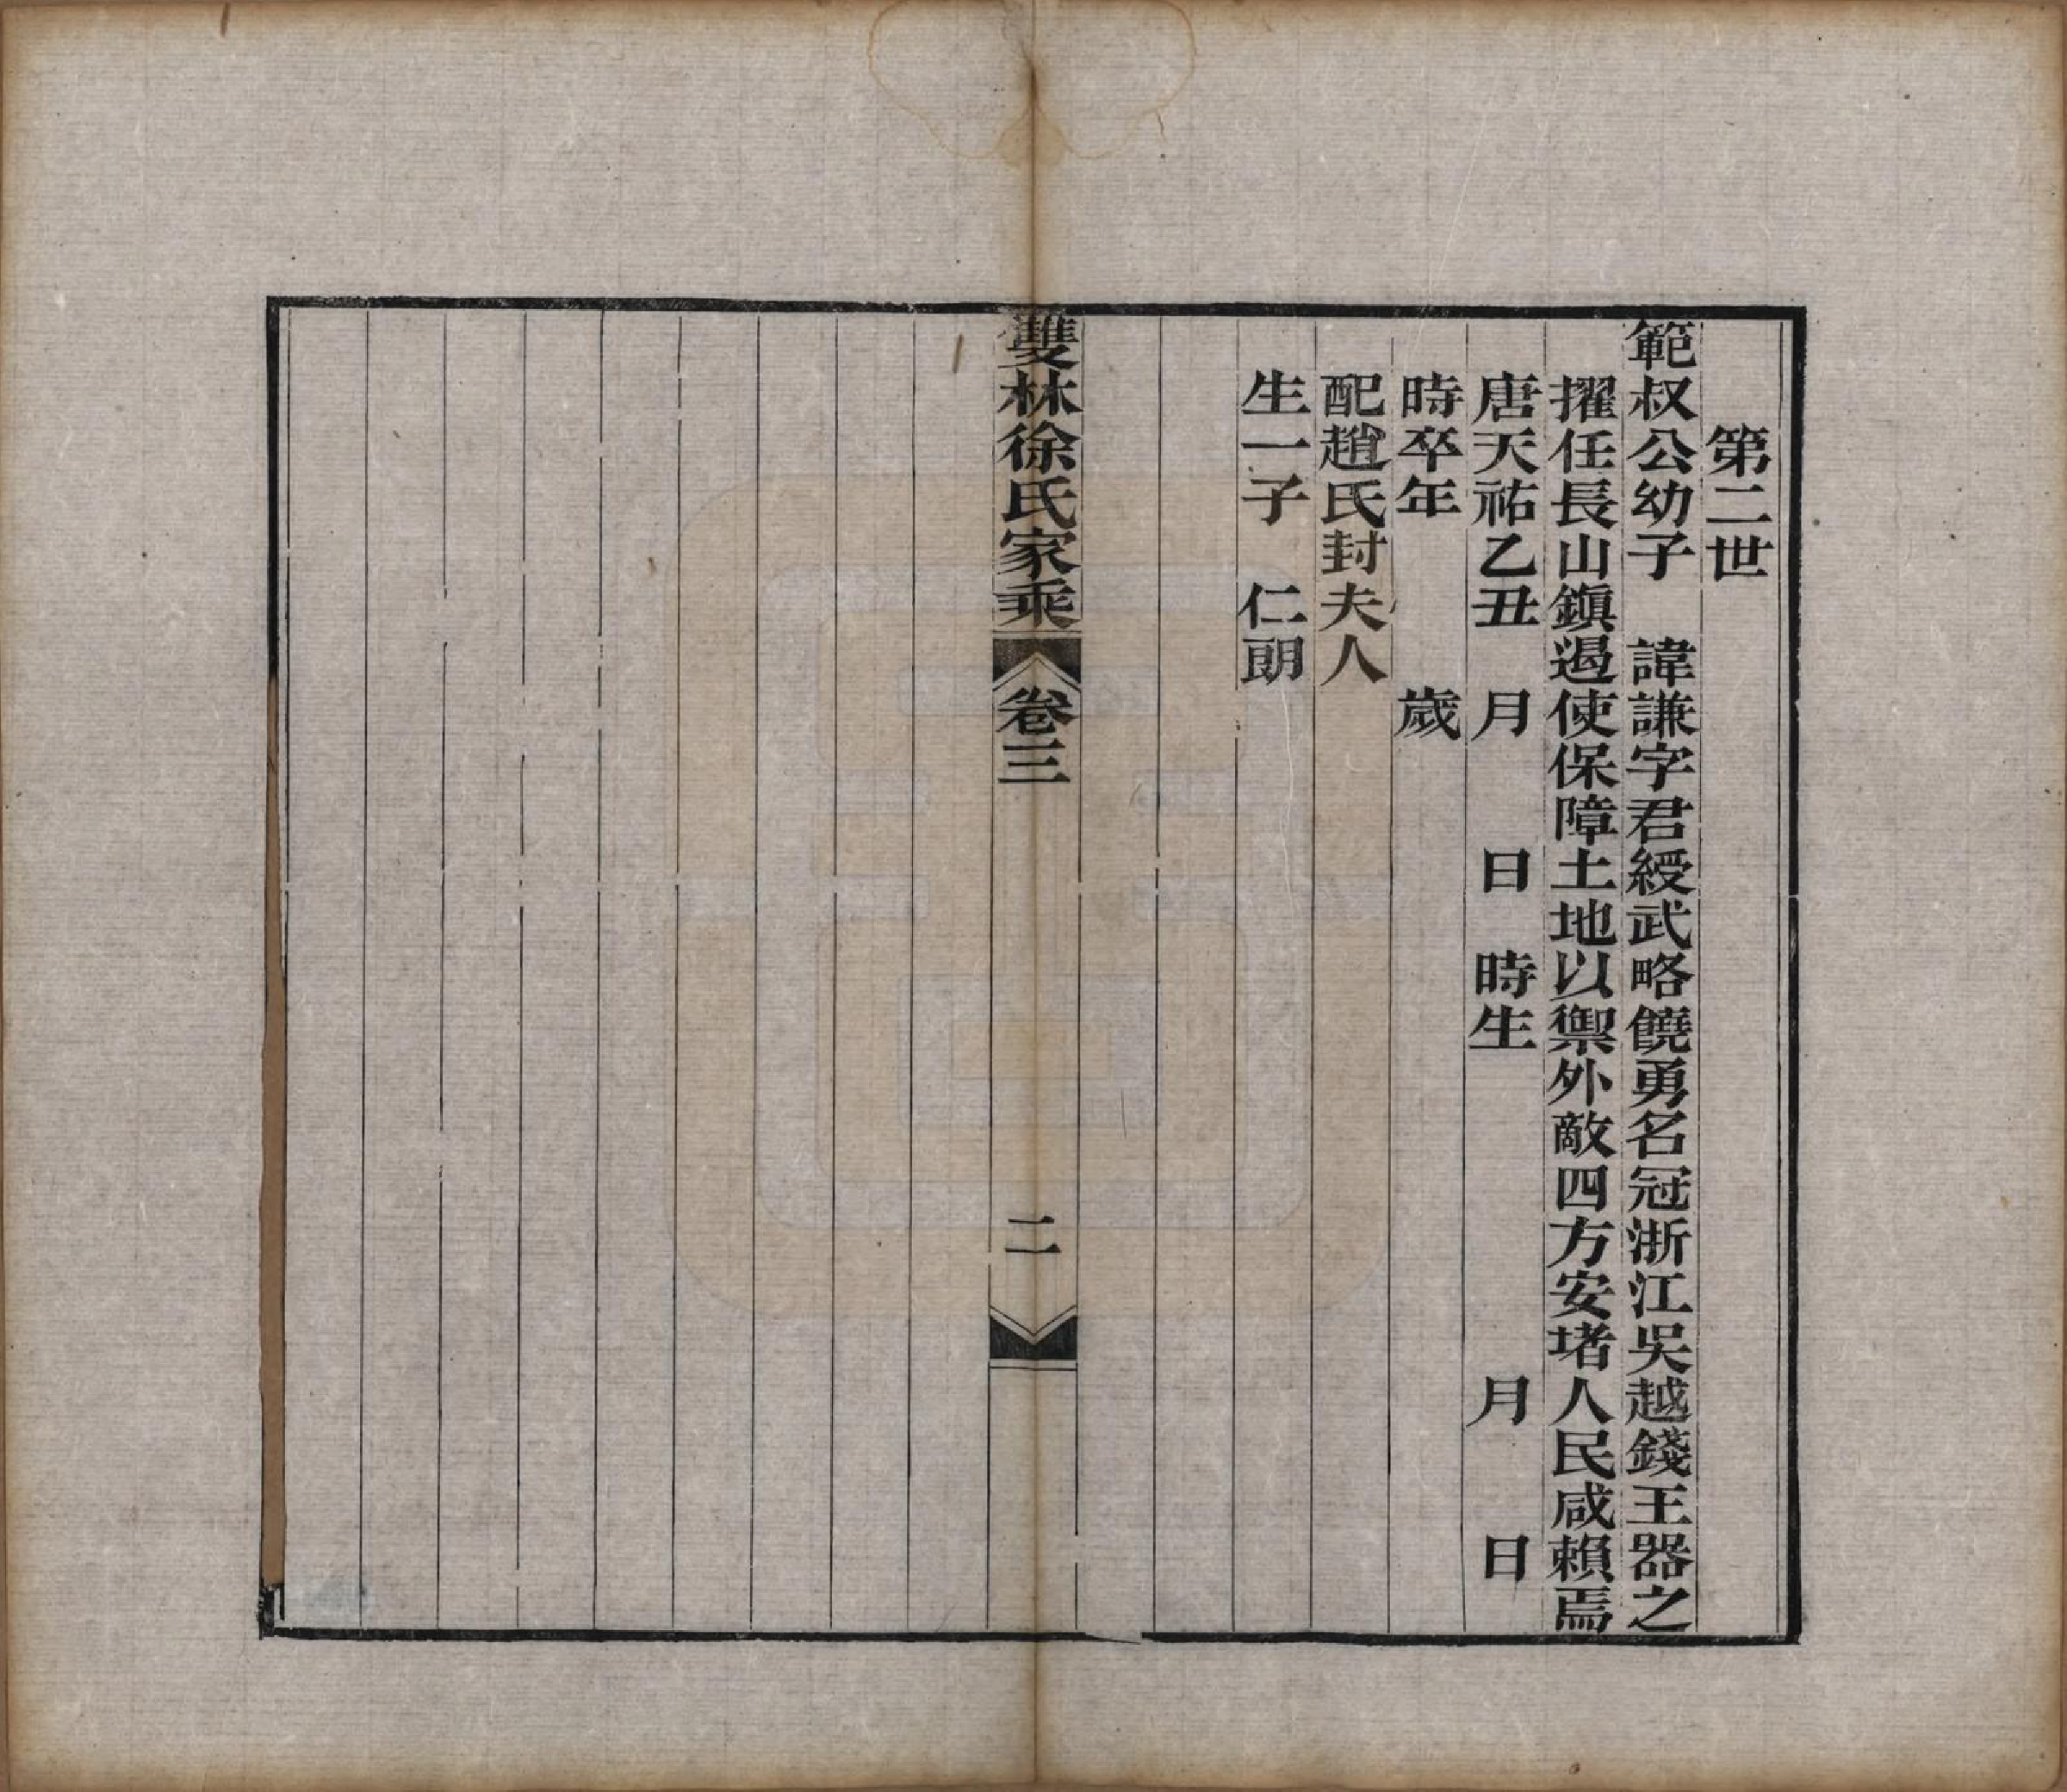 第二世
範叔公幼子　諱謙字君綬武略饒勇名冠浙江吳越錢王器之
擢任長山鎭遏使保障土地以禦外敵四方安堵人民咸賴焉
唐天祐乙丑　月　日　時生　月　日
時卒年　歲
配趙氏封夫人
生一子　仁朗
雙林徐氏家乘　卷三　二